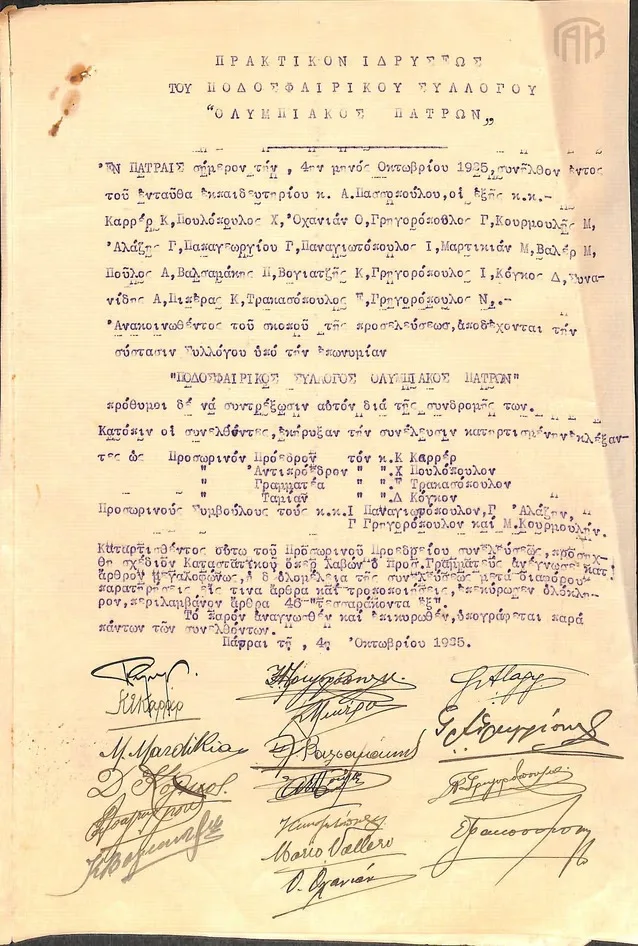 ΠΡΑΚΤΙΚΟΝ ΙΔΡΥΣΕΩΣ
ΤΟΥ ΠΟΔΟΣΦΑΙΡΙΚΟΥ ΣΥΛΛΟΓΟΥ
"ΟΛΥΜΠΙΑΚΟΣ ΠΑΤΡΩΝ„
ἘΝ ΠΑΤΡΑΙΣ σήμερον τήν , 4ην μηνός Οκτωβρίου 1925,συνῆλθον ἐντος
τοῦ ἐνταῦθα ἐκπαιδευτηρίου κ. Α.Πασσοπούλου,οἱ ἑξῆς κ.κ.-
Καρρέρ Κ,Πουλόπουλος Χ,Ὀχανιάν Ο,Γρηγορόπουλος Γ,Κουρμουλῆς Μ,
Ἀλάζης Γ,Παπαγεωργίου Γ,Παναγιωτόπουλος Ι,Μαρτικιάν Μ,Βαλέρ Μ,
Ποῦλος Α,Βαλσαμάκης Π,Βογιατζῆς Κ,Γρηγορόπουλος Ι,Κόγκος Δ,Συνα-
νίδης Α,Πιπέρας Κ,Τρακασόπουλος Ε,Γρηγορόπουλος Ν,.-
Ἀνακοινωθέντος τοῦ σκοποῦ τῆς προσελεύσεωσ,ἀποδέχονται τήν
σύστασιν Συλλόγου ὑπό τήν ἐπωνυμίαν
"ΠΟΔΟΣΦΑΙΡΙΚΟΣ ΣΥΛΛΟΓΟΣ ΟΛΥΜΠΙΑΚΟΣ ΠΑΤΡΩΝ"
πρόθυμοι δέ νά συντρέξωσιν αὐτόν διά τῆς συνδρομῆς των.
Κατόπιν οἱ συνελθόντες,ἐκήρυξαν τήν συνέλευσιν κατηρτισμένην ἐκλέξαν-
τες ὡς Προσωρινόν Πρόεδρον τόν κ.Κ Καρρέρ
" Ἀντιπρόεδρον " ".Χ Πουλόπουλον
" Γραμματέα " ".Ε Τρακασόπουλον
" Ταμίαν " ".Δ Κόγκον
Προσωρινούς Συμβούλους τούς κ.κ.Ι Παναγιωτόπουλον,Γ Ἀλάζην,
Γ Γρηγορόπουλον καί Μ.Κουρμουλήν.
Καταρτισθέντος οὕτω τοῦ Προσωρινοῦ Προεδρείου συνελεύσεως,προσηχ-
θη σχέδιον Καταστατικοῦ ὅπερ λαβών ὁ Προσ.Γραμματεύς ἀνέγνωσε κατ'
ἄρθρον μεγαλοφώνως,ἡ δ ὁλομέλεια τῆς συνελεύσεως μετά διαφόρου
παρατηρήσεις εἰς τινα ἄρθρα καί τροποποιήσεις,ἐπεκύρωσεν ὁλόκλη-
ρον,περιλαμβάνον ἄρθρα 46 "τεσσαράκοντα ἕξ".
Τό παρόν ἀναγνωσθέν καί ἐπικυρωθέν,ὑπογράφεται παρά
πάντων τῶν συνελθόντων.
Πάτραι τῇ , 4ῃ Ὀκτωβρίου 1925.
Κ Καρρέρ
Μ. Mardikian
Δ. Κόγκος
Π. Βαλσαμάκης
Mario Vallero
Ο. Οχανιάν
G. Alazy
ΓΑΚ